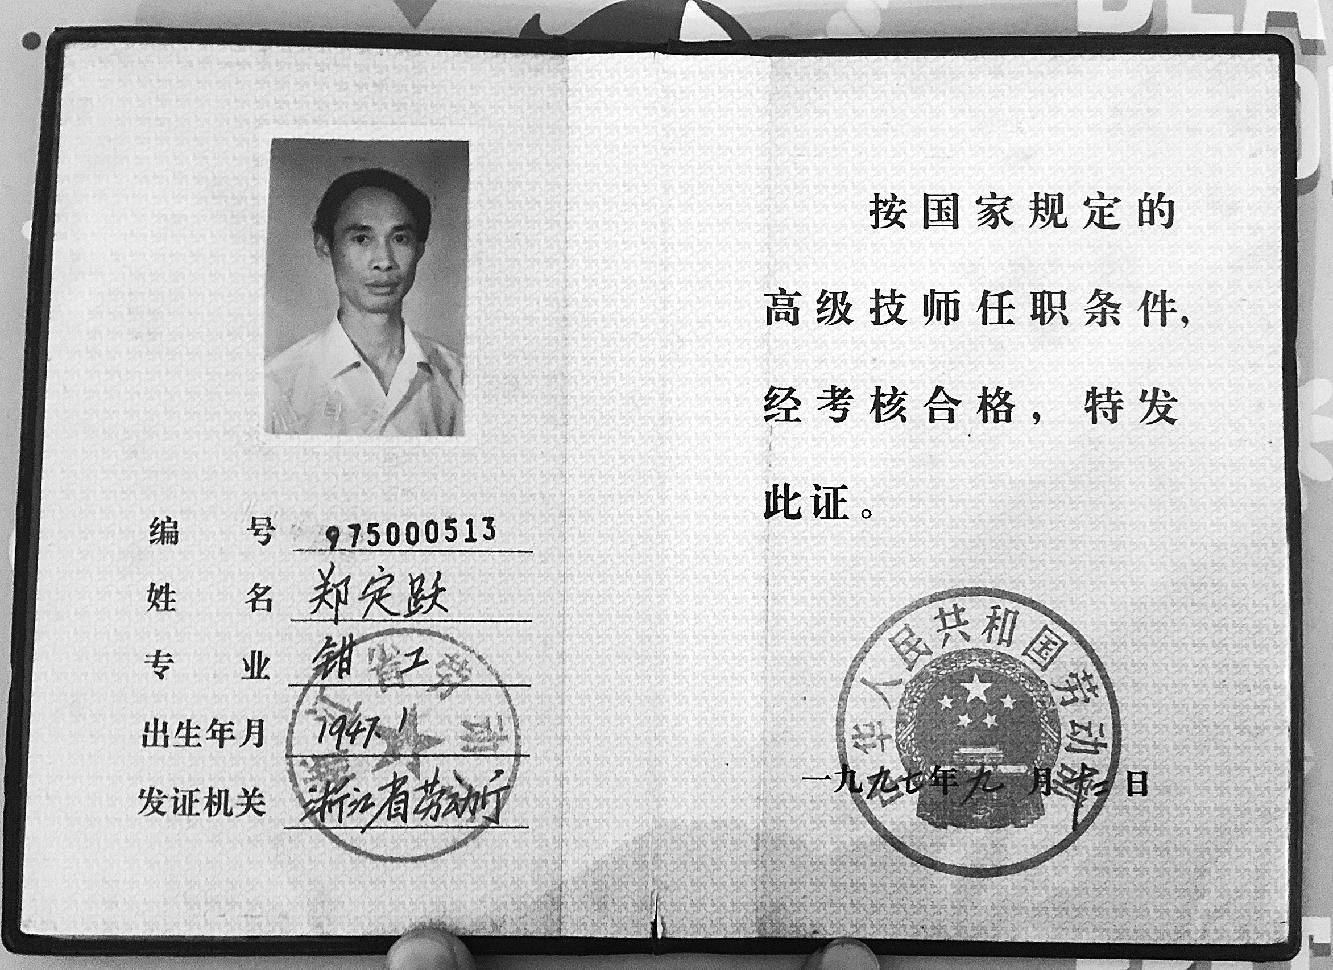 编号 975000513
姓名 郑定跃
专业 钳工
出生年月 1947.1
发证机关 浙江省劳动厅
浙江省劳动厅
按国家规定的
高级技师任职条件,
经考核合格，特发
此证。
中华人民共和国劳动部
一九九七年九月 日